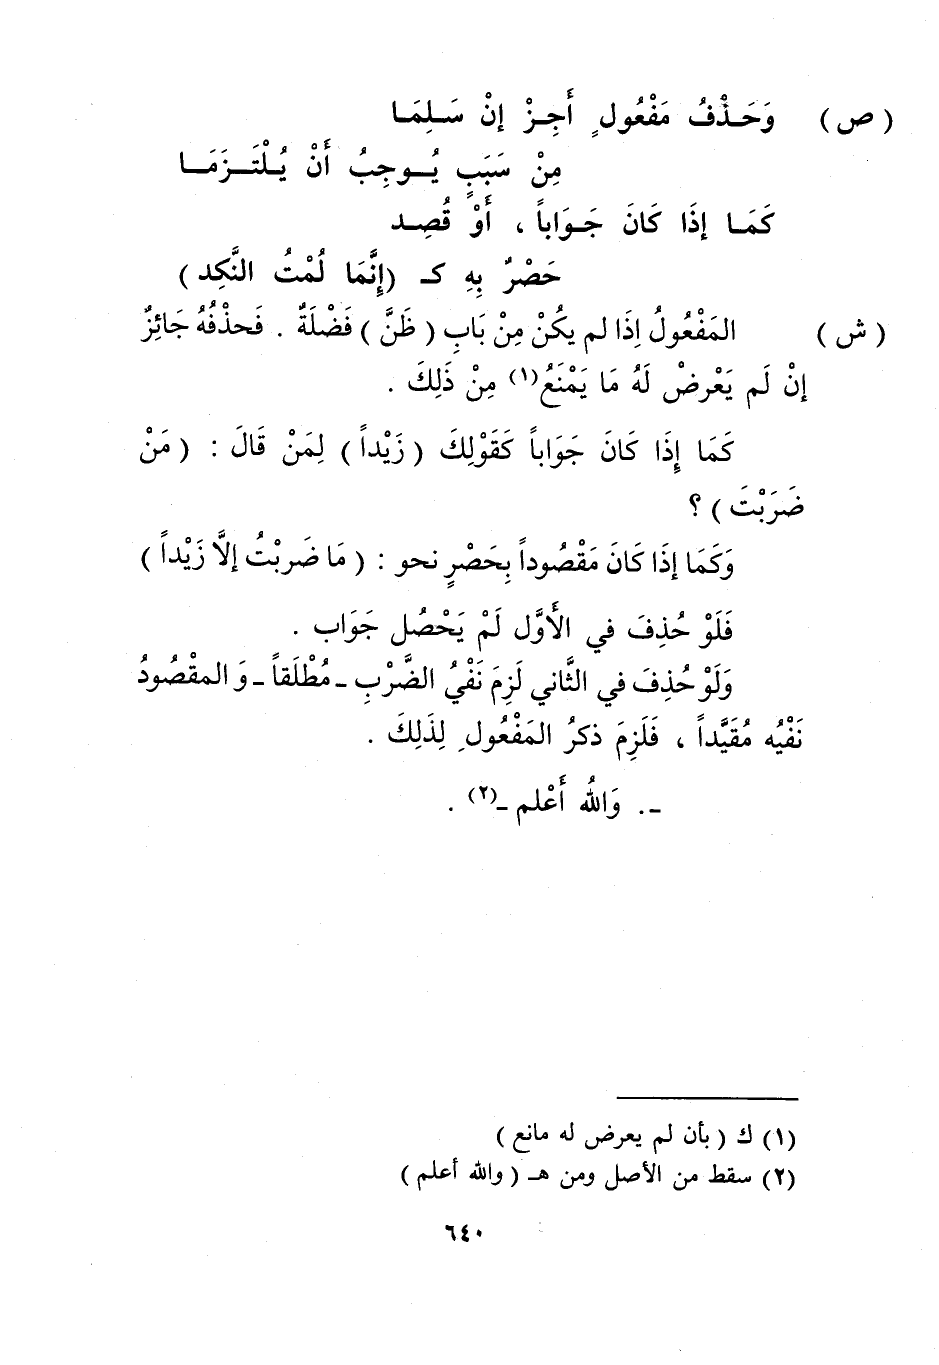 (ص) وَحَـذْفُ مَفْعُولٍ أَجِـزْ إنْ سَـلِمَـا
مِنْ سَبَبٍ يُـوجِبُ أَنْ يُـلْتَـزَمَـا
كَمَـا إِذَا كَانَ جَـوَاباً ، أَوْ قُصِـد
حَصْرٌ بِهِ كـ (إِنَّمَا لُمْتُ النَّكِد)
(ش) المَفْعُولُ إِذَا لم يكُنْ مِنْ بَابِ (ظَنَّ) فَضْلَةٌ . فَحذْفُهُ جَائِزٌ
إنْ لَم يَعْرضْ لَهُ مَا يَمْنَعُ(١) مِنْ ذَلِكَ .
كَمَا إِذَا كَانَ جَوَاباً كَقَوْلِكَ (زَيْداً) لِمَنْ قَالَ : (مَنْ
ضَرَبْتَ) ؟
وَكَمَا إذَا كَانَ مَقْصُوداً بِحَصْرٍ نحو : (مَا ضَربْتُ إلاَّ زَيْداً)
فَلَوْ حُذِفَ في الأَوَّل لَمْ يَحْصُل جَوَاب .
وَلَوْ حُذِفَ في الثَّاني لَزِمَ نَفْيُ الضَّرْبِ ـ مُطْلَقاً ـ وَالمقْصُودُ
نَفْيُه مُقَيَّداً ، فَلَزِمَ ذكرُ المَفْعُولِ لِذَلِكَ .
ـ . وَاللهُ أَعْلم ـ(٢) .
(١) ك (بأن لم يعرض له مانع)
(٢) سقط من الأصل ومن هـ (والله أعلم)
٦٤٠